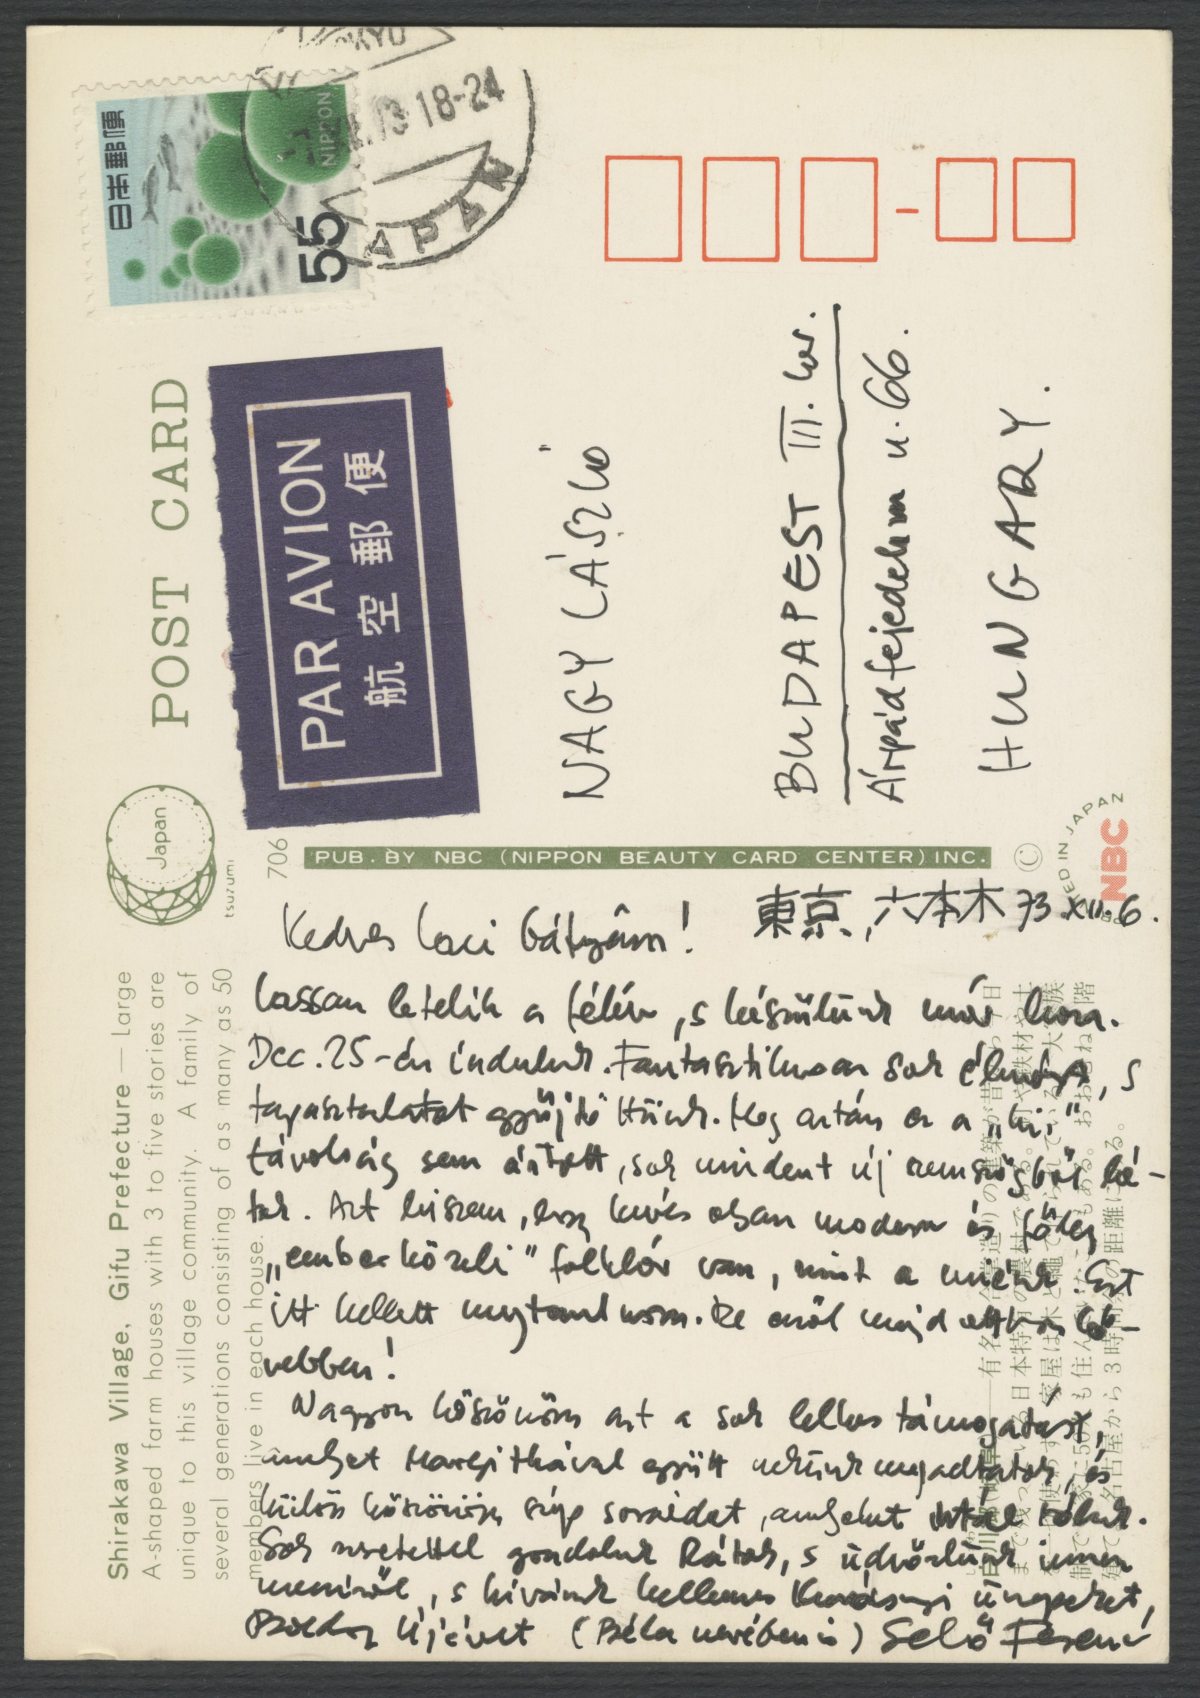 TOKYO
18-24
JAPAN
日本郵便
NIPPON
55
POST CARD
PAR AVION
航空郵便
NAGY LÁSZLÓ
BUDAPEST III. ker.
Árpád fejedelem u. 66.
HUNGARY.
Japan
tsuzumi
706
PUB. BY NBC (NIPPON BEAUTY CARD CENTER) INC.
©
NBC
Shirakawa Village, Gifu Prefecture — Large
A-shaped farm houses with 3 to five stories are
unique to this village community. A family of
several generations consisting of as many as 50
members live in each house.
東京, 六本木 73. XII. 6.
Kedves Laci bátyám!
Lassan letelik a félév, s készülünk már haza.
Dec. 25-én indulunk. Fantasztikusan sok élményt, s
tapasztalatot gyűjtöttünk. Meg aztán ez a „kis"
távolság sem ártott, sok mindent új szemszögből lá-
tok. Azt hiszem, hogy kevés olyan modern és főleg
„emberközeli" folklór van, mint a miénk. Ezt
itt kellett megtanulnom. De erről majd otthon bő-
vebben!
Nagyon köszönöm azt a sok lelkes támogatást,
amelyet Margitkával együtt nekünk megadtatok, és
külön köszönöm szép soraidat, amelyeket írtál rólunk.
Sok szeretettel gondolunk Rátok, s üdvözlünk innen
messziről, s kívánunk kellemes Karácsonyi ünnepeket,
Boldog Újévet (Béla nevében is) Sebő Ferenc